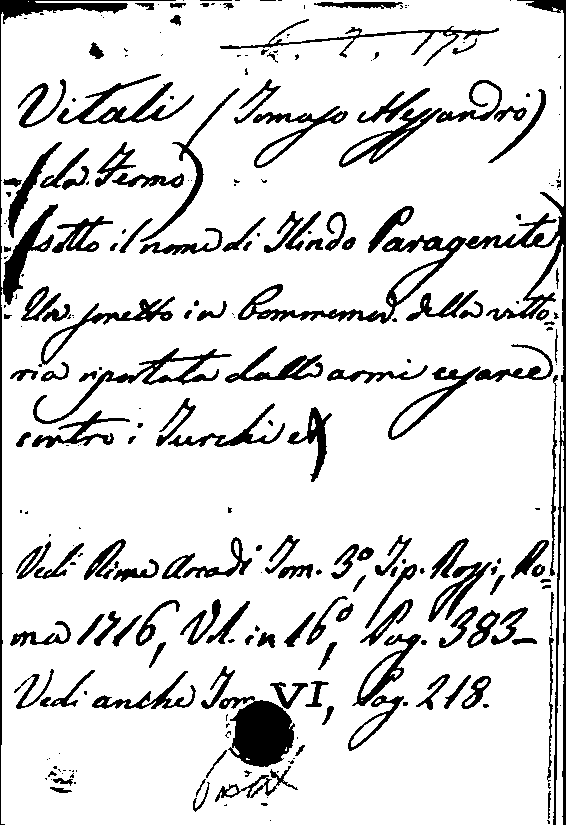 6. 2. 175
Vitali (Tomaso Alessandro)
(da Fermo)
(sotto il nome di Ilindo Paragenite)
Un sonetto in Commemod. della vitto=
ria riportata dalle armi cesaree
contro i Turchi
Vedi Rime Arcadi Tom. 3º, Tip. Rossi, Ro=
ma 1716, Vol. in 16º, Pag. 383–
Vedi anche Tom. VI, Pag. 218.